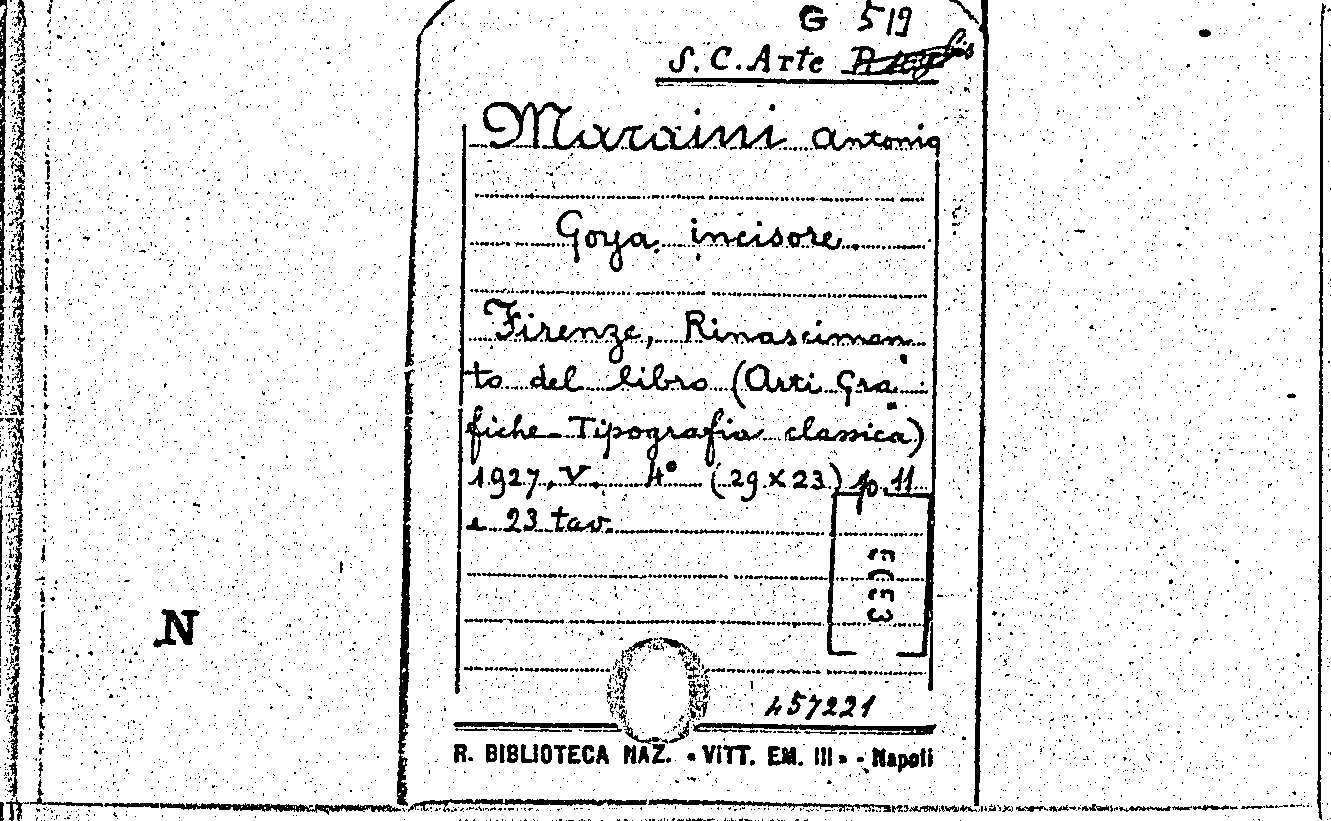 G 519
S. C. Arte
Maraini Antonio
Goya incisore.
Firenze, Rinascimen
to del libro (Arti Gra
fiche - Tipografia classica)
1927. V. 4° (29 x 23) p. 11
e 23 tav.
N
457221
R. BIBLIOTECA NAZ. « VITT. EM. III » - Napoli